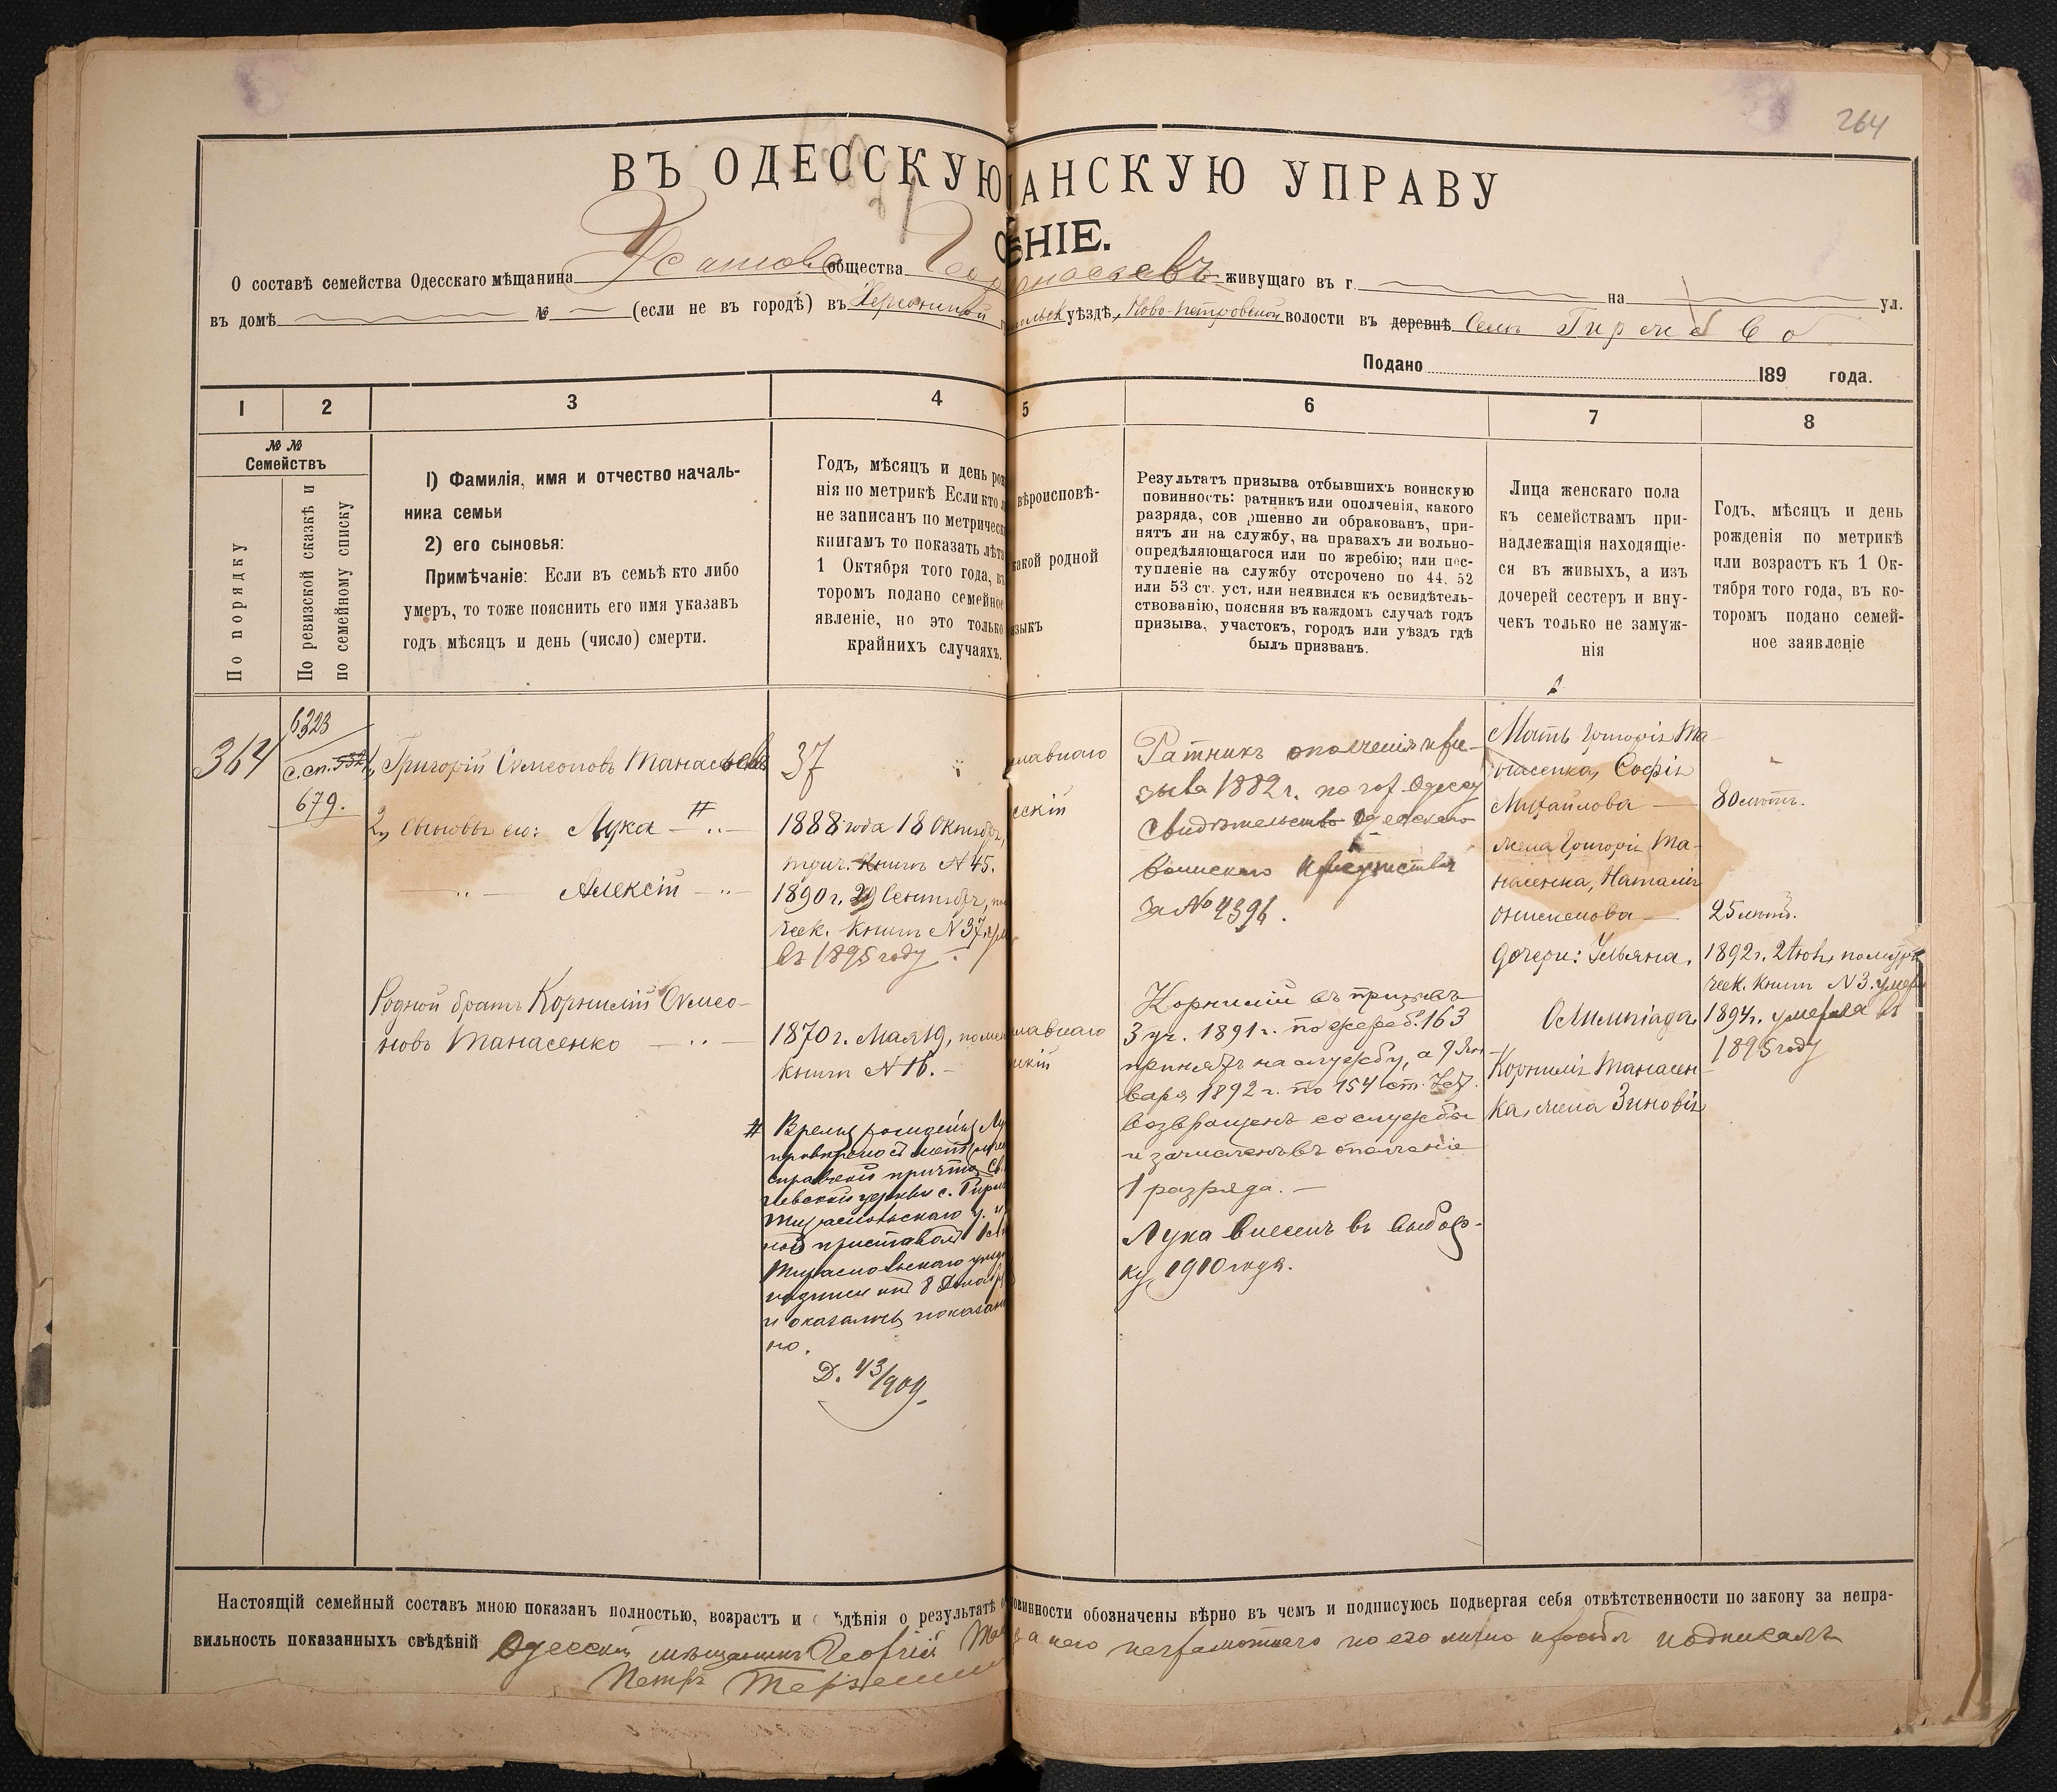 264
ВЪ ОДЕССКУЮ АНСКУЮ УПРАВУ
ЕНІЕ.
О составѣ семейства Одесскаго мѣщанина Усатово общества живущаго въ г. на ул.
въ домѣ № (если не въ городѣ) въ Херсонской уѣздѣ, Ново-Петровской волости въ деревнѣ Селѣ
Подано 189 года.
1 2 3 4 5 6 7 8
№ №
Семействъ
По порядку
По ревизской сказкѣ и
по семейному списку
1) Фамилія, имя и отчество началь-
ника семьи
2) его сыновья:
Примѣчаніе: Если въ семьѣ кто либо
умеръ, то тоже пояснить его имя указавъ
годъ мѣсяцъ и день (число) смерти.
Годъ, мѣсяцъ и день рож
нія по метрикѣ Если кто
не записанъ по метрическ
книгамъ то показать лѣта
1 Октября того года, въ
торомъ подано семейное
явленіе, но это только
крайнихъ случаяхъ.
вѣроисповѣ-
какой родной
языкъ
Результатъ призыва отбывшихъ воинскую
повинность: ратникъ или ополченія, какого
разряда, сов ршенно ли обракованъ, при-
нятъ ли на службу, на правахъ ли вольно-
опредѣляющагося или по жребію; или пос-
тупленіе на службу отсрочено по 44, 52
или 53 ст. уст. или неявился къ освидѣтель-
ствованію, поясняя въ каждомъ случаѣ годъ
призыва, участокъ, городъ или уѣздъ гдѣ
былъ призванъ.
Лица женскаго пола
къ семействамъ при-
надлежащія находящіе-
ся въ живыхъ, а изъ
дочерей сестеръ и вну-
чекъ только не замуж-
нія
Годъ, мѣсяцъ и день
рожденія по метрикѣ
или возрастъ къ 1 Ок-
тября того года, въ ко-
торомъ подано семей-
ное заявленіе
364
6323
с.сп.
679.
1, Григорій Симеоновъ Танасьевъ
2, Сыновья его: Лука #
Алексій
Родной братъ Корнилій Симео-
новъ Танасенко
37
1888 года 18 Октября,
книги N 45.
1890 г. 29 Сентябр,
ческ. книги N 37
въ 1895 году.
1870 г. Мая 19,
книги N 16.
# Время рожденія Лу
справкой причта Св.
церкви с.
Тираспольскаго у. и
приставомъ 1
Тираспольскаго уѣзда
8
и оказалось показан
но.
Д. 43/909.
славнаго
сскій
славнаго
скій
Ратникъ ополченія при-
зыва 1882 г. по гор. Одессу
Свидѣтельство Одесскаго
воинскаго Присутствія
За № 4396.
Корнилій въ призывъ
3 уч. 1891 г. по жереб. 163
принятъ на службу, а 9 Ян-
варя 1892 г. по 154 ст. Уст.
возвращенъ со службы
и зачисленъ въ ополченіе
1 разряда.
Лука внесенъ въ выбор-
ку 1910 года.
Мать Григорія Та-
насенка, Софія
Михайлова
жена Григорія Та-
насенка, Наталія
Онисимова
дочери: Ульяна,
Олимпіада,
Корнилія Танасен-
ка, жена Зиновія
80 лѣтъ.
25 лѣтъ.
1892 г. 2 Іюн, по метри
ческ. книги N 3. умер
1894 г. умерла въ
1895 году
Настоящій семейный составъ мною показанъ полностью, возрастъ и ѣдѣнія о результатѣ о повинности обозначены вѣрно въ чемъ и подписуюсь подвергая себя отвѣтственности по закону за непра-
вильность показанныхъ свѣдѣній Одесскій мѣщанинъ Георгій Та за него неграмотнаго по его личной просьбѣ подписалъ
Петръ